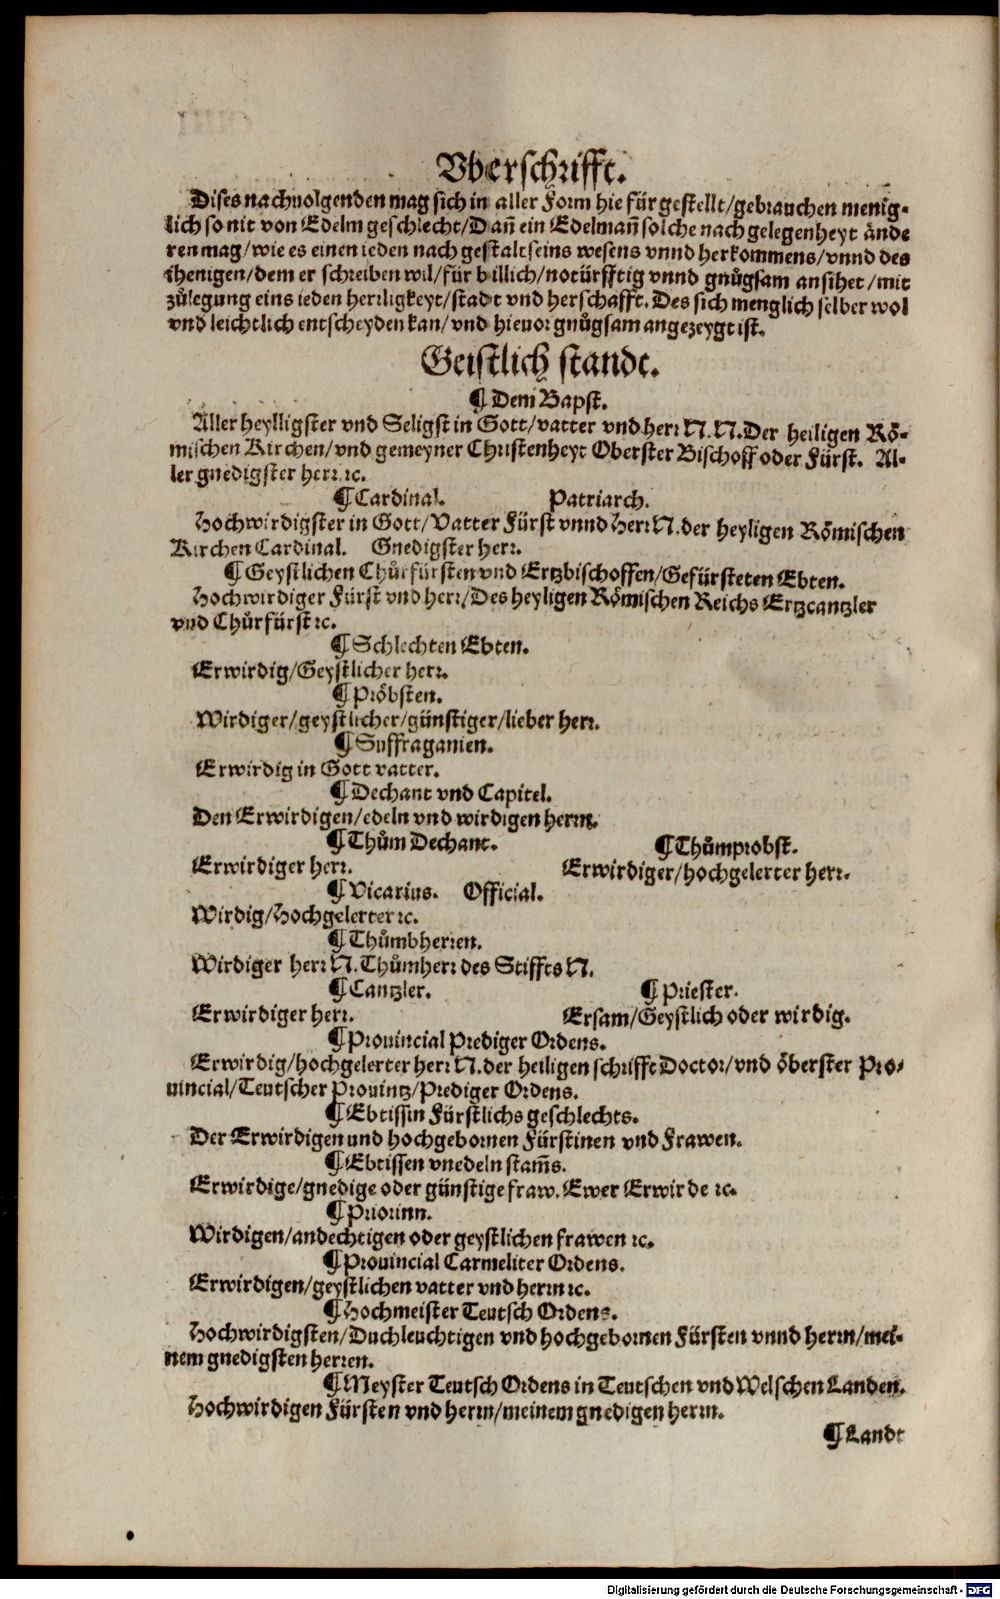 Vberschrifft.
Dises nachuolgenden mag sich in aller Form hie fürgestellt/gebrauchen menig-
lich so nit von Edelm geschlecht/Dañ ein Edelmañ solche nach gelegenheyt ände
ren mag/wie es einen ieden nach gestalt seins wesens vnnd herkommens/vnnd des
ihenigen/dem er schreiben wil/für billich/notürfftig vnnd gnůgsam ansihet/mit
zůlegung eins ieden herrligkeyt/stadt vnd herschafft. Des sich menglich selber wol
vnd leichtlich entscheyden kan/vnd hieuor gnůgsam angezeygt ist.
Geistlich standt.
¶ Dem Bapst.
Aller heylligster vnd Seligst in Gott/vatter vnd herr N.N. Der heiligen Rö-
mischen Kirchen/vnd gemeyner Christenheyt Oberster Bischoff oder Fürst. Al-
ler gnedigster herr ꝛc.
¶ Cardinal. Patriarch.
Hochwirdigster in Gott/Vatter Fürst vnnd Herr N. der heyligen Römischen
Kirchen Cardinal. Gnedigster herr.
¶ Geystlichen Chůrfürsten vnd Ertzbischoffen/Gefürsteten Ebten.
Hochwirdiger Fürst vnd herr/Des heyligen Römischen Reichs Ertzcantzler
vnd Chůrfürst ꝛc.
¶ Schlechten Ebten.
Erwirdig/Geystlicher herr.
¶ Pröbsten.
Wirdiger/geystlicher/günstiger/lieber herr.
¶ Suffraganien.
Erwirdig in Gott vatter.
¶ Dechant vnd Capitel.
Den Erwirdigen/edeln vnd wirdigen herrn.
¶ Thům Dechant. ¶ Thůmprobst.
Erwirdiger herr. Erwirdiger/hochgelerter herr.
¶ Vicarius. Official.
Wirdig/Hochgelerter ꝛc.
¶ Thůmbherren.
Wirdiger herr N. Thůmherr des Stiffts N.
¶ Cantzler. ¶ Priester.
Erwirdiger herr. Ersam/Geystlich oder wirdig.
¶ Prouincial Prediger Ordens.
Erwirdig/hochgelerter herr N. der heiligen schrifft Doctor/vnd öberster Pro-
uincial/Teutscher Prouintz/Prediger Ordens.
¶ Ebtissin Fürstlichs geschlechts.
Der Erwirdigen und hochgebornen Fürstinen vnd Frawen.
¶ Ebtissen vnedeln stam̃s.
Erwirdige/gnedige oder günstige fraw. Ewer Erwirde ꝛc.
¶ Priorinn.
Wirdigen/andechtigen oder geystlichen frawen ꝛc.
¶ Prouincial Carmeliter Ordens.
Erwirdigen/geystlichen vatter vnd herrn ꝛc.
¶ Hochmeister Teutsch Ordens.
Hochwirdigsten/Duchleuchtigen vnd hochgebornen Fürsten vnnd herrn/mei-
nem gnedigsten herren.
¶ Meyster Teutsch Ordens in Teutschen vnd Welschen Landen.
Hochwirdigen Fürsten vnd herrn/meinem gnedigen herrn.
¶ Landt
Digitalisierung gefördert durch die Deutsche Forschungsgemeinschaft - DFG